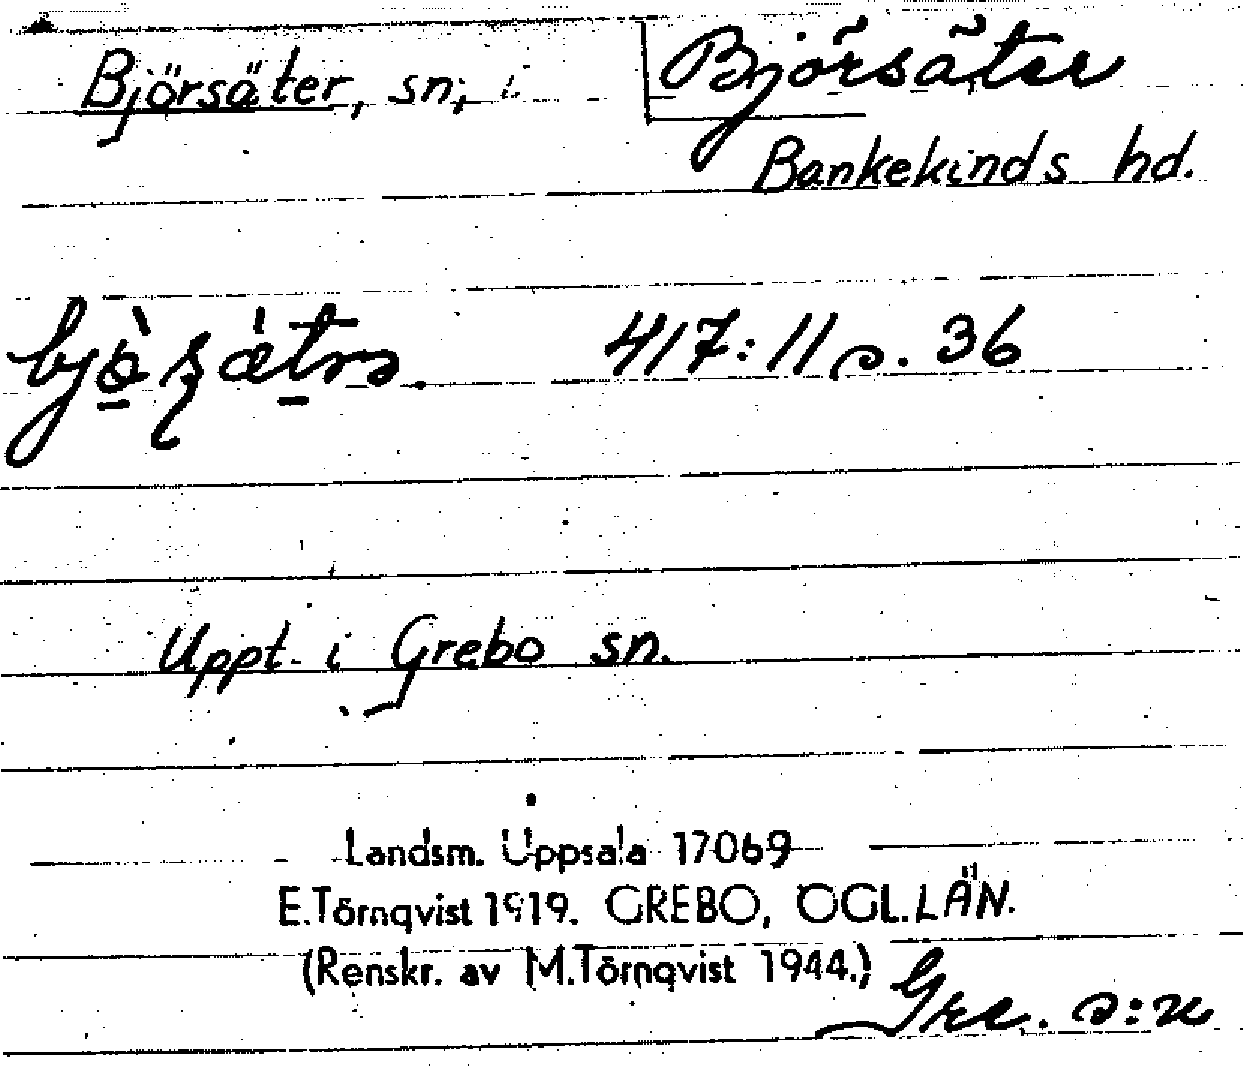 Björsäter, sn, i
Björsäter
Bankekinds hd.
417:11 s. 36
Uppt. i Grebo sn.
Landsm. Uppsala 17069
E.Törnqvist 1919. GREBO, ÖGL.LÄN.
(Renskr. av M.Törnqvist 1944.)
Gre. s:n